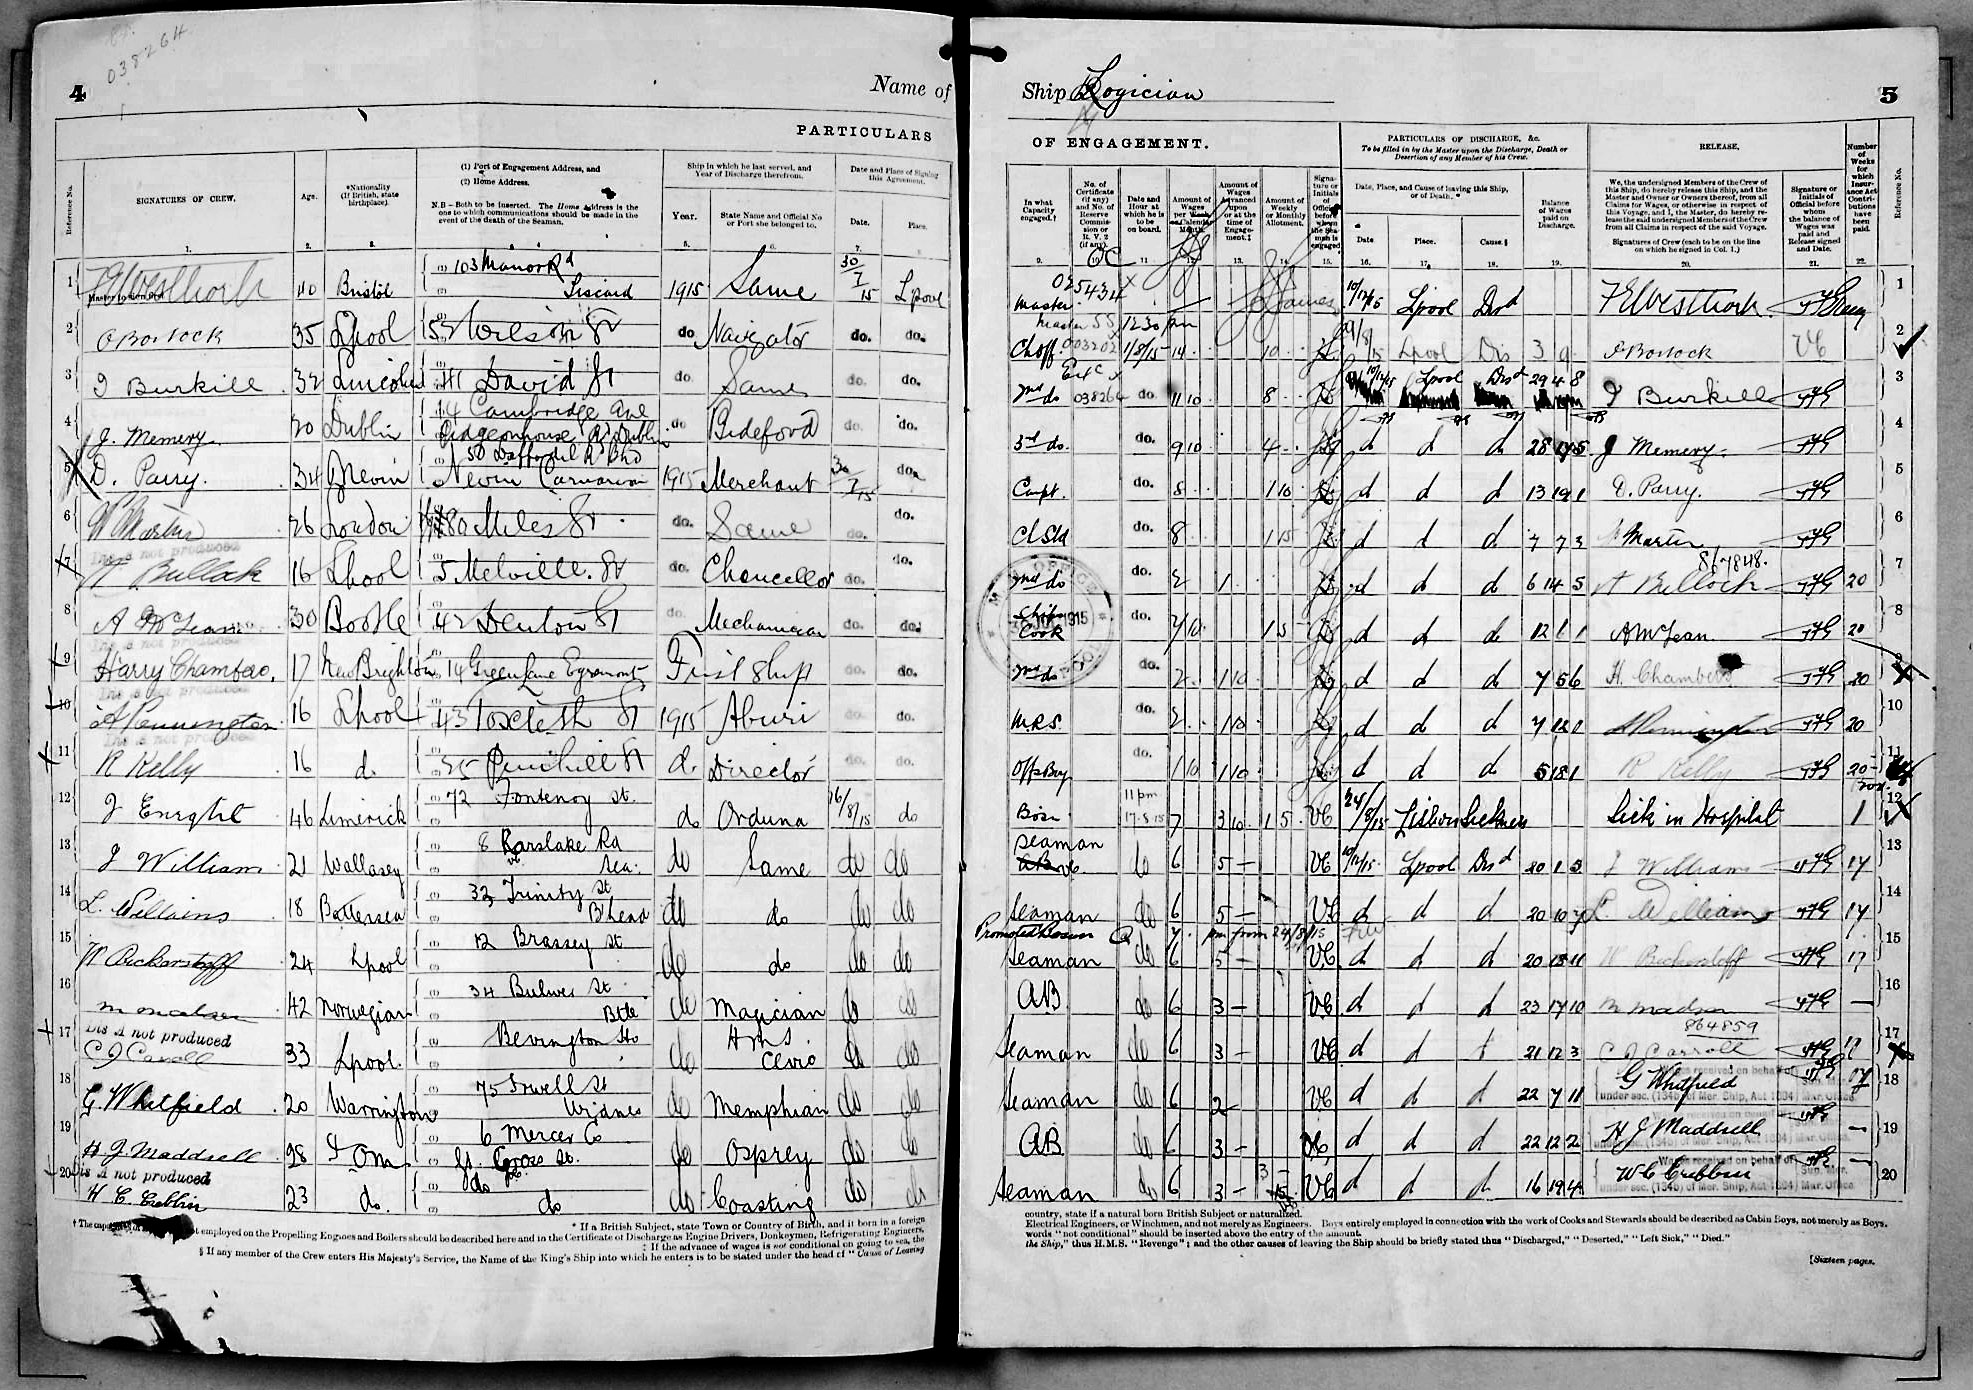 038264
4
Name of
PARTICULARS
Reference No.
SIGNATURES OF CREW.
Age.
*Nationality (If British, state birthplace).
(1) Port of Engagement Address, and
(2) Home Address.
N.B – Both to be inserted. The Home Address is the one to which communications should be made in the event of the death of the Seaman.
Ship in which he last served, and Year of Discharge therefrom.
Year.
State Name and Official No or Port she belonged to.
Date and Place of Signing this Agreement.
Date.
Place.
1. 2. 3. 5. 6. 7.
1 40 Bristol 103 Manor Rd Liscard 1915 Same 30/7/15 Lpool
Master to sign first
2 O Bostock 35 Lpool Wilson St do Navigator do. do.
3 J Burkill 32 Lincoln 41 David St do Same do. do.
4 J. Memery 20 Dublin 14 Cambridge Ave Pidgeonhouse Rd Dublin do Bideford do. do.
5 D. Parry. 34 Nevin 50 Daffodil Rd Bhd Nevin Carnarvon 1915 Merchant 30/7/15 do.
6 W Martin 26 London 80 Miles St do. Same do. do.
Dis A not produced
7 Bullock 16 Lpool 5 Melville St do. Chancellor do. do.
8 A McLean 30 Bootle 42 Denton St do. Mechanician do. do.
Dis A not produced
9 Harry Chambers. 17 New Brighton 14 Green Lane Egremont First Ship do. do.
Dis A not produced
10 A Pennington 16 Lpool 43 Toxteth St 1915 Aburi do. do.
Dis A not produced
11 R Kelly 16 d. Penihill St d. Director do. do.
12 J Enright 46 Limerick 72 Fontenoy St. do Orduna 16/8/15 do
13 J William 21 Wallasey 8 Karslake Rd Sea. do Same do do
14 L. Williams 18 Battersea 32 Trinity St B'head do do do do
15 W Bickerstaff 24 Lpool 12 Brassey St do do do do
16 M Madsen 42 Norwegian 34 Bulwer St. Btle do Magician do do
17 Dis A not produced
C J Carroll 33 Lpool. Bevington Ho do HMS Clvio do do
18 G. Whitfield 20 Warrington 75 Irwell St Widnes do Memphian do do
19 H J. Maddrell 28 I OM 6 Mercer Co Gt. Cross St. do Osprey do do
20 Dis A not produced
Cribbin 23 do. do do do Coasting do do
* If a British Subject, state Town or Country of Birth, and if born in a foreign
employed on the Propelling Engines and Boilers should be described here and in the Certificate of Discharge as Engine Drivers, Donkeymen, Refrigerating Engineers,
‡ If the advance of wages is not conditional on going to sea, the
§ If any member of the Crew enters His Majesty's Service, the Name of the King's Ship into which he enters is to be stated under the head of "Cause of Leaving
Ship Logician
5
OF ENGAGEMENT.
PARTICULARS OF DISCHARGE, &c.
To be filled in by the Master upon the Discharge, Death or Desertion of any Member of his Crew.
RELEASE,
Number of Weeks for which Insurance Act Contributions have been paid.
Reference No.
In what Capacity engaged.†
No. of Certificate (if any) and No. of Reserve Commission or R. V. 2 (if any).
Date and Hour at which he is to be on board.
Amount of Wages per Week or Calendar Month.
Amount of Wages Advanced upon or at the time of Engagement.‡
Amount of Weekly or Monthly Allotment.
Signature or Initials of Official before whom the Seaman is engaged
Date, Place, and Cause of leaving this Ship, or of Death. *
Date
Place.
Cause.§
Balance of Wages paid on Discharge.
We, the undersigned Members of the Crew of this Ship, do hereby release this Ship, and the Master and Owner or Owners thereof, from all Claims for Wages, or otherwise in respect of this Voyage, and I, the Master, do hereby release the said undersigned Members of the Crew from all Claims in respect of the said Voyage.
Signatures of Crew (each to be on the line on which he signed in Col. 1.)
Signature or Initials of Official before whom the balance of Wages was paid and Release signed and Date.
9. 10. 11 12. 13. 14. 15. 16. 17. 18. 19. 20. 21. 22.
Master 025434 10/12/15 Lpool Disd 1
Master SS 12 30 pm
Ch off. 003202 1/8/15 14 10 Lpool Dis 3 9 O Bostock VC 2
2nd do 038264 11 10 8 10/12/15 Lpool Disd 29 4 8 J Burkill 3
3rd do. do. 9 10 4 d d d J Memery 4
Carpt. do. 8 1 10 d d d 13 19 1 D. Parry. 5
Ch Std do. 8 1 15 d d d 7 7 3 Martin 6
2nd do do. 2 1 d d d 6 14 5 Bullock 20 7
Ships Cook do. 7/10 1 5 d d d 12 1 1 A McLean 20 8
2nd do do. 2 1 10 d d d 7 5 6 H. Chambers 20 9
M.R.S. do. 2 1 10 d d d A Pennington 20 10
Offs Boy do. 1 10 1 10 d d d 5 18 1 R Kelly 20 11
Bosn 11 pm 17.8.15 7 3 10 1 5 VC 24/8/15 Lisbon Sickness Sick in Hospital 1 12
Seaman do 6 5 – VC 10/12/15 Lpool Disd 20 1 3 J Williams 17 13
Seaman do 6 5 – VC d d d 20 10 L Williams 17 14
Promoted Bosun @ 7. pm from 24/8/15
Seaman do 6 5 – VC d d d 20 18 11 W Bickerstaff 17 15
AB do 6 3 – VC d d d 23 17 10 M Madsen – 16
864859
Seaman do 6 3 – VC d d d 21 12 3 C J Carroll 17
Seaman do 6 2 – VC d d d 22 7 11 G Whitfield 17 18
AB do 6 3 – VC d d d 22 12 2 H J Maddrell – 19
Seaman do 6 3 – VC d d d 16 19 4 W C Cribbin – 20
country, state if a natural born British Subject or naturalized.
Electrical Engineers, or Winchmen, and not merely as Engineers. Boys entirely employed in connection with the work of Cooks and Stewards should be described as Cabin Boys, not merely as Boys.
words "not conditional" should be inserted above the entry of the amount.
the Ship," thus H.M.S. "Revenge"; and the other causes of leaving the Ship should be briefly stated thus "Discharged," "Deserted," "Left Sick," "Died."
[Sixteen pages.